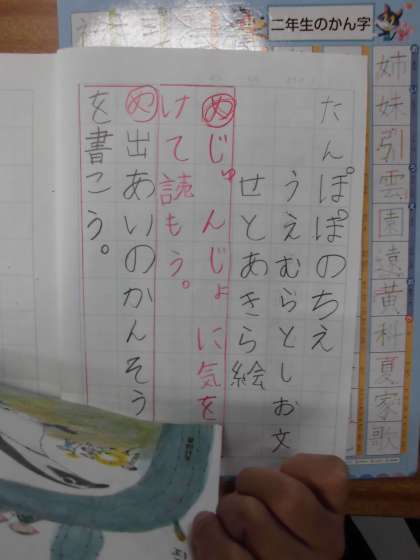 二年生のかん字
たんぽぽのちえ
うえむらとしお文
せとあきら絵
めじゅんじょに気を
けて読もう。
め出あいのかんそう
を書こう。
姉
妹
引
雲
園
遠
黄
科
夏
家
歌